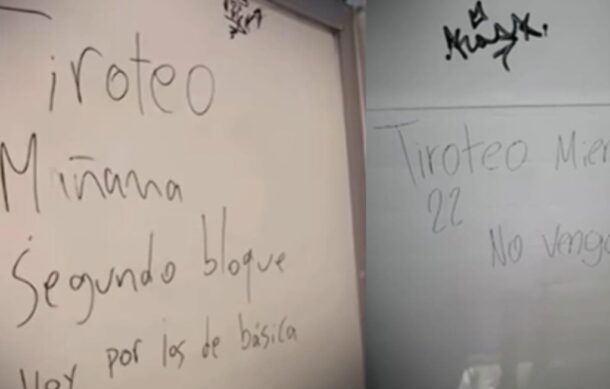 Tiroteo
Miñana
Segundo bloque
Voy por los de básica
Tiroteo Mier
22
No venga